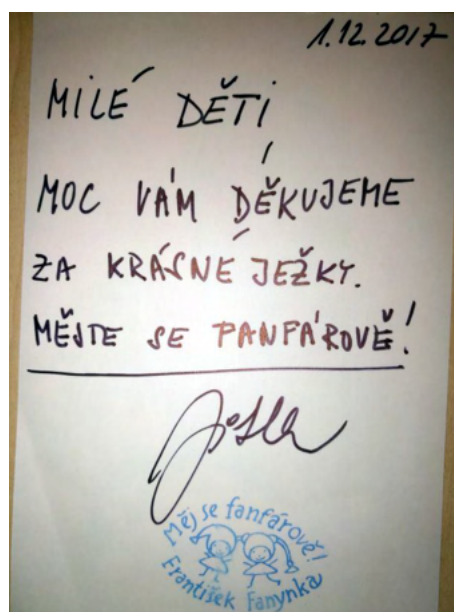 1.12.2017
MILÉ DĚTI
MOC VÁM DĚKUJEME
ZA KRÁSNÉ JEŽKY.
MĚJTE SE PANFÁROVĚ!
Měj se fanfárově!
František Fanynka